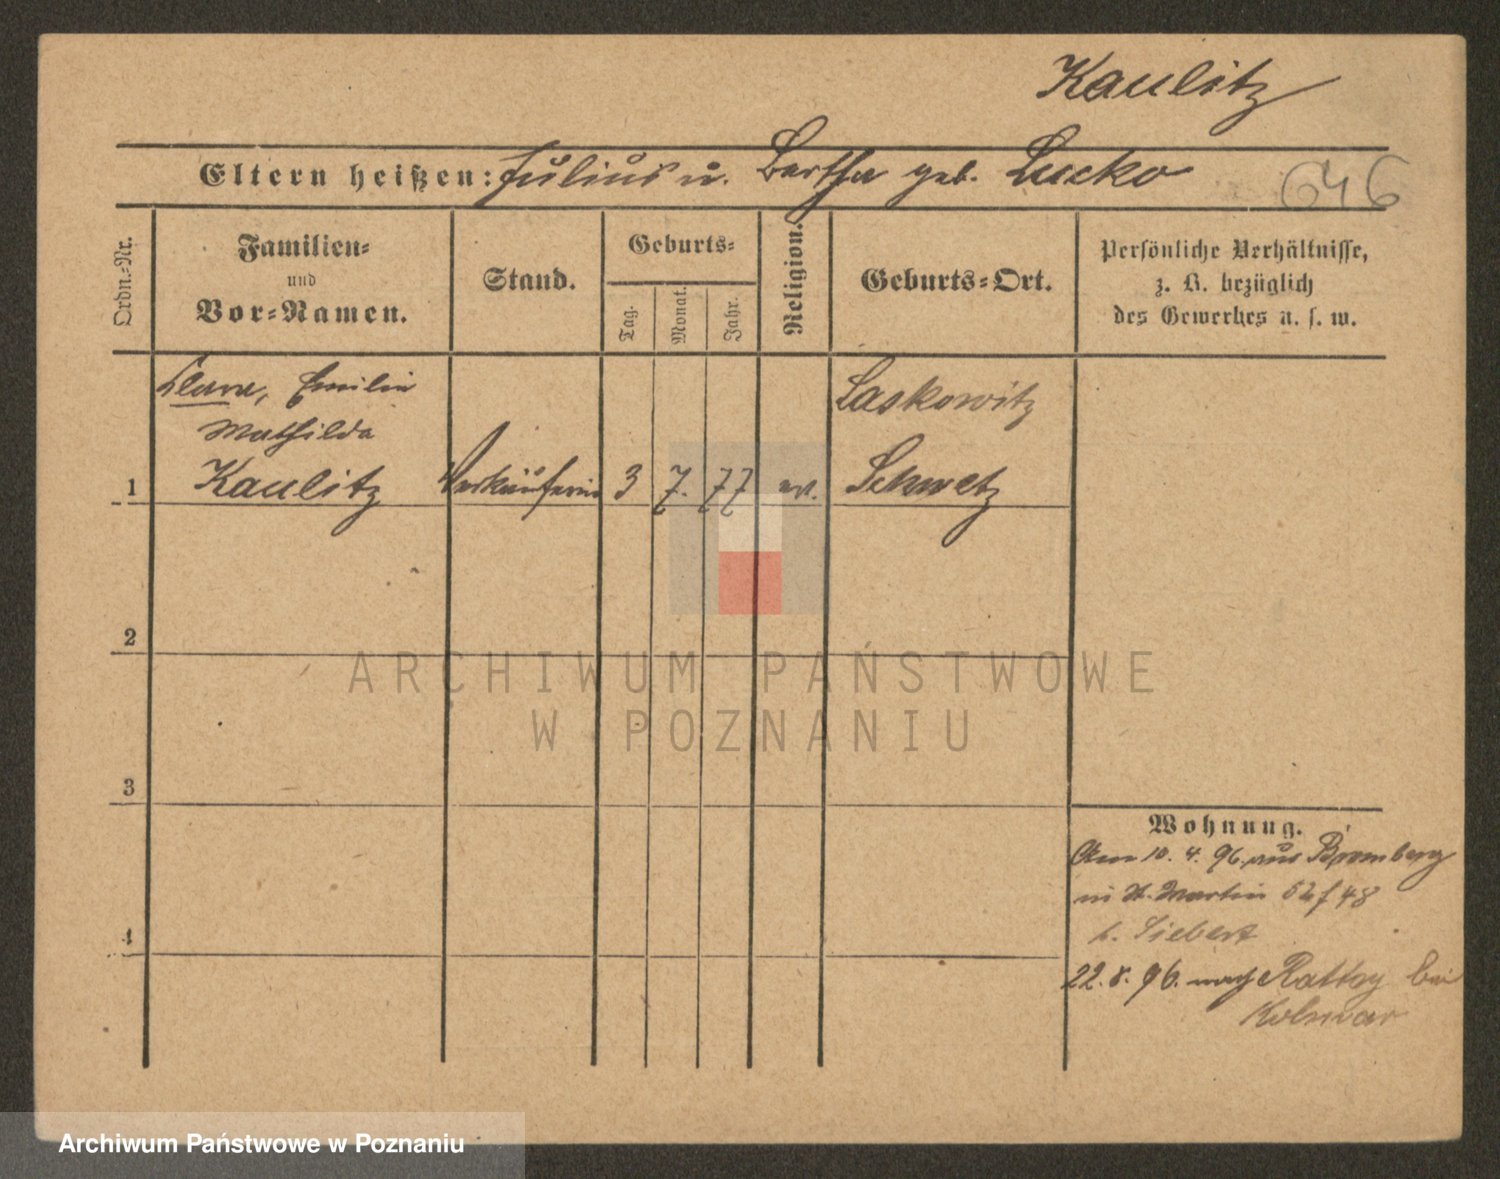 Kaulitz
Eltern heißen: Julius u. Bertha geb. Lucko
646
Ordn.-Nr.
Familien-
und
Vor-Namen.
Stand.
Geburts-
Tag.
Monat.
Jahr.
Religion.
Geburts-Ort.
Persönliche Verhältnisse,
z. B. bezüglich
des Gewerbes u. s. w.
Clara, Emilie
Mathilda
1 Kaulitz Verkäuferin 3 7. 77 ev. Laskowitz
Schwetz
2
3
4
Wohnung.
Am 10. 4. 96 aus Bromberg
in St. Martin 52/48
b. Siebert
22. 8. 96. nach Rattay bei
Kolmar
ARCHIWUM PAŃSTWOWE
W POZNANIU
Archiwum Państwowe w Poznaniu